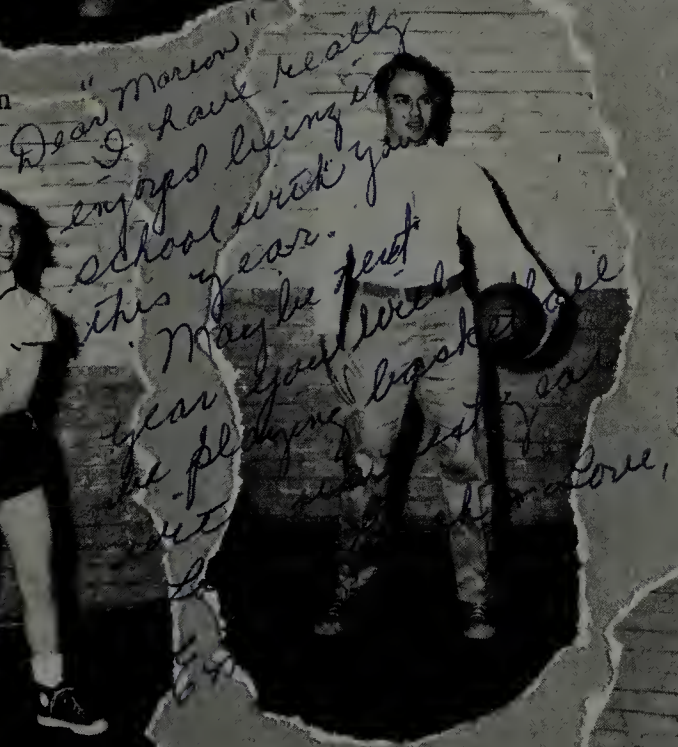 n
Dear "Marion,"
I have really
enjoyed being in
school with you
this year.
Maybe next
year you will
be playing basketball
next year
Love,